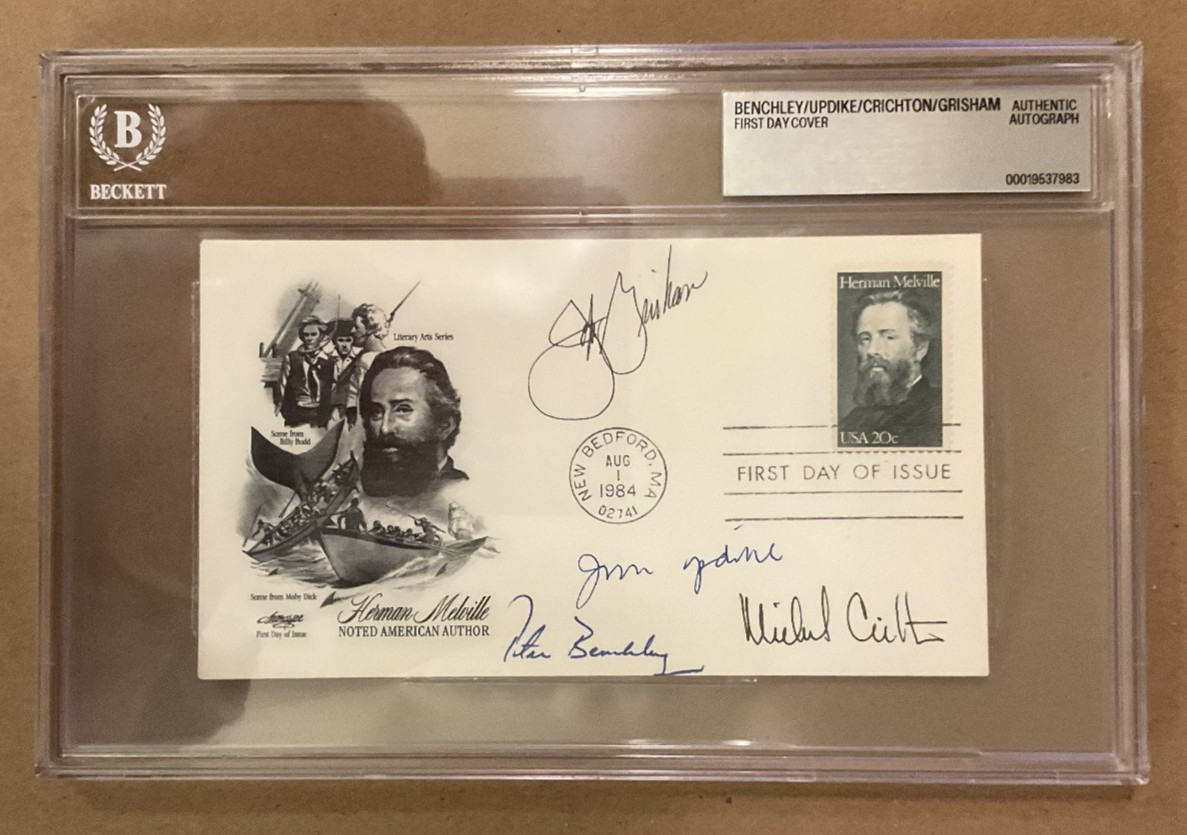 B
BECKETT
BENCHLEY/UPDIKE/CRICHTON/GRISHAM
FIRST DAY COVER
AUTHENTIC
AUTOGRAPH
00019537983
John Grisham
Herman Melville
USA 20c
Literary Arts Series
Scene from
Billy Budd
NEW BEDFORD, MA
AUG
1
1984
02741
FIRST DAY OF ISSUE
John Updike
Scene from Moby Dick
Artcraft
First Day of Issue
Herman Melville
NOTED AMERICAN AUTHOR
Peter Benchley
Michael Crichton